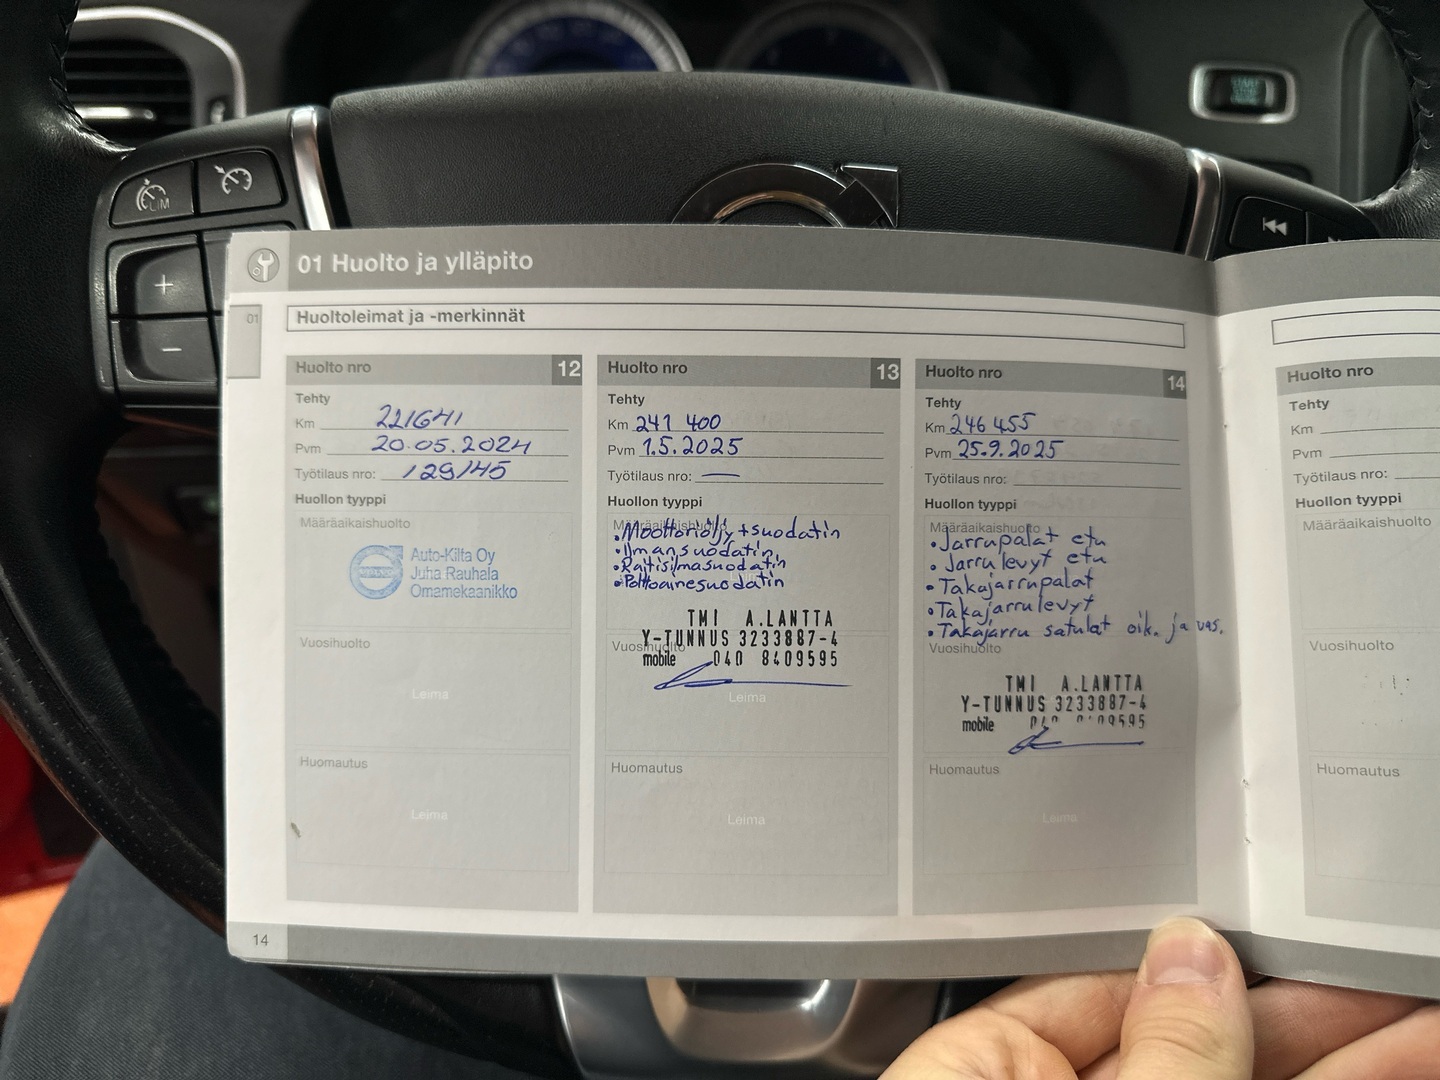 LIM
START
01 Huolto ja ylläpito
01
Huoltoleimat ja -merkinnät
Huolto nro 12
Tehty
Km 221641
Pvm 20.05.2024
Työtilaus nro: 129145
Huollon tyyppi
Määräaikaishuolto
Auto-Kilta Oy
Juha Rauhala
Omamekaanikko
Vuosihuolto
Leima
Huomautus
Leima
Huolto nro 13
Tehty
Km 241 400
Pvm 1.5.2025
Työtilaus nro: —
Huollon tyyppi
Määräaikaishuolto
• Moottoriöljy + suodatin
• Ilmansuodatin
• Raitisilmasuodatin
• Polttoainesuodatin
TMI A.LANTTA
Y-TUNNUS 3233887-4
Vuosihuolto
mobile 040 8409595
Leima
Huomautus
Leima
Huolto nro 14
Tehty
Km 246 455
Pvm 25.9.2025
Työtilaus nro:
Huollon tyyppi
Määräaikaishuolto
• Jarrupalat etu
• Jarrulevyt etu
• Takajarrupalat
• Takajarrulevyt
• Takajarru satulat oik. ja vas.
Vuosihuolto
TMI A.LANTTA
Y-TUNNUS 3233887-4
mobile
Huomautus
Leima
14
Huolto nro
Tehty
Km
Pvm
Työtilaus nro:
Huollon tyyppi
Määräaikaishuolto
Vuosihuolto
Huomautus